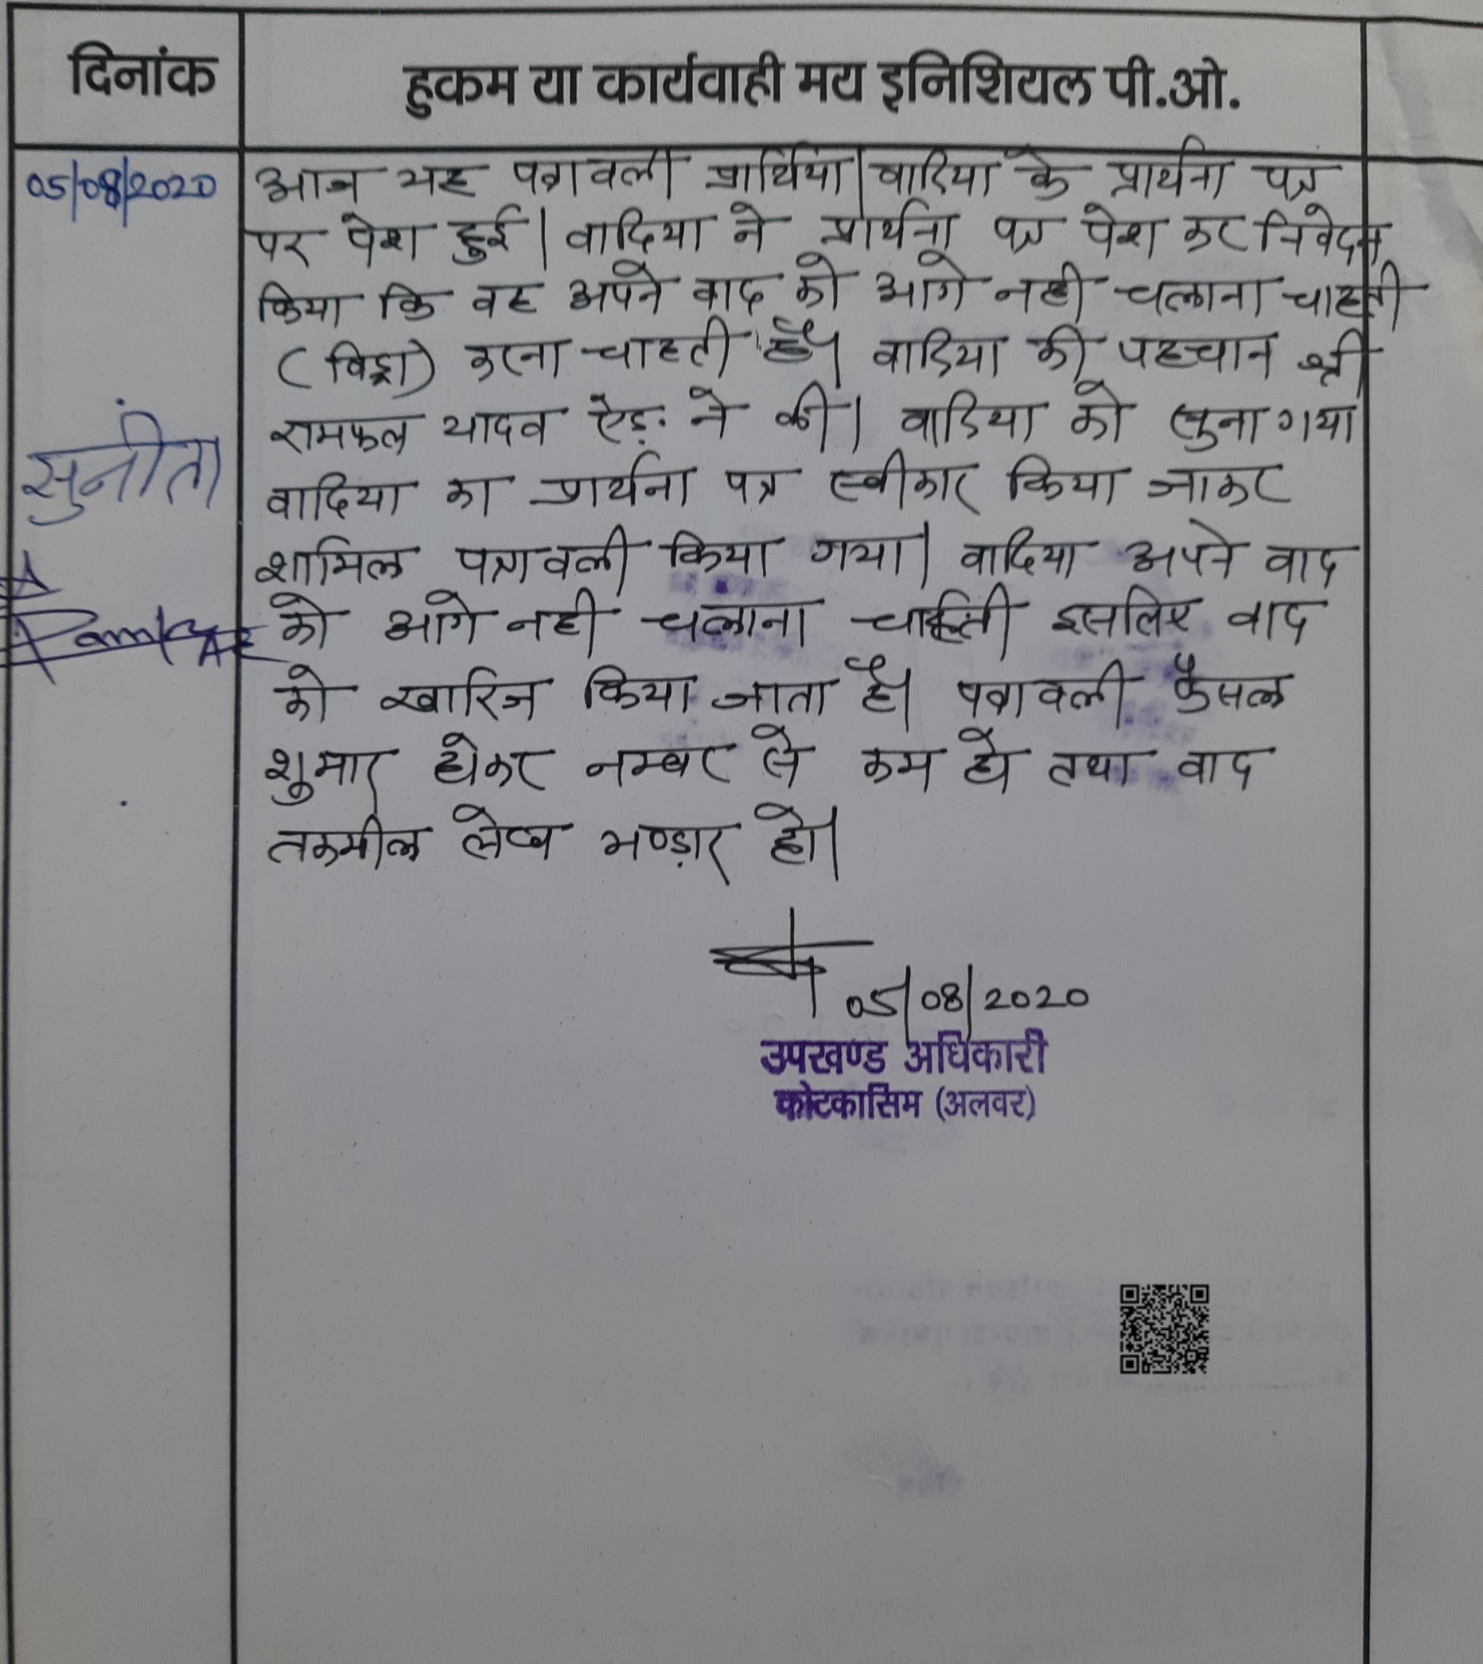 दिनांक
हुकम या कार्यवाही मय इनिशियल पी.ओ.
05/08/2020
आज यह पत्रावली प्रार्थिया/वादिया के प्रार्थना पत्र
पर पेश हुई। वादिया ने प्रार्थना पत्र पेश कर निवेदन
किया कि वह अपने वाद को आगे नही चलाना चाहती
(विड्रा) करना चाहती है। वादिया की पहचान श्री
रामफल यादव ऐड. ने की। वादिया को सुना गया
वादिया का प्रार्थना पत्र स्वीकार किया जाकर
शामिल पत्रावली किया गया। वादिया अपने वाद
को आगे नही चलाना चाहती इसलिए वाद
को खारिज किया जाता है। पत्रावली फैसल
शुमार होकर नम्बर से कम हो तथा वाद
तकमील लेख्य भण्डार हो।
सुनीता
05/08/2020
उपखण्ड अधिकारी
कोटकासिम (अलवर)